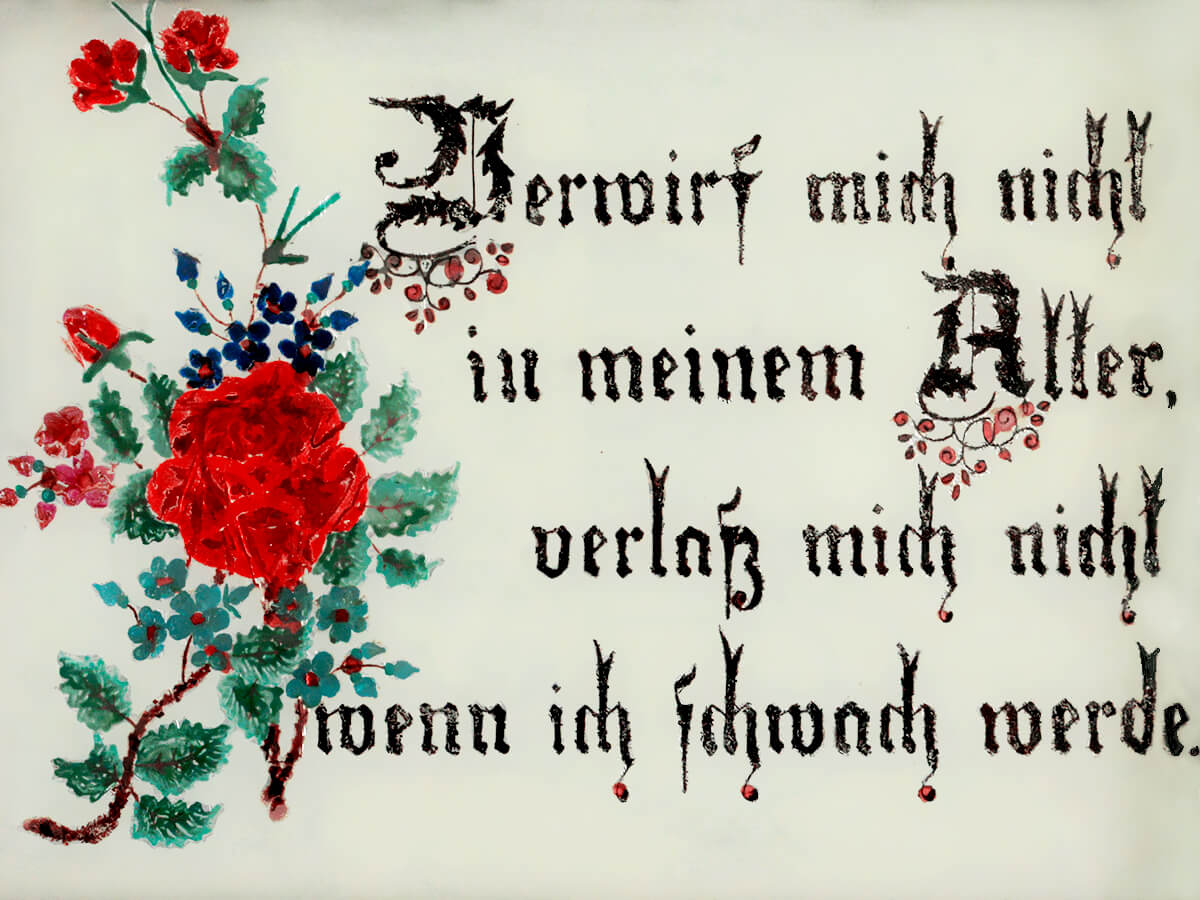 Verwirf mich nicht
in meinem Alter,
verlaß mich nicht
wenn ich schwach werde.